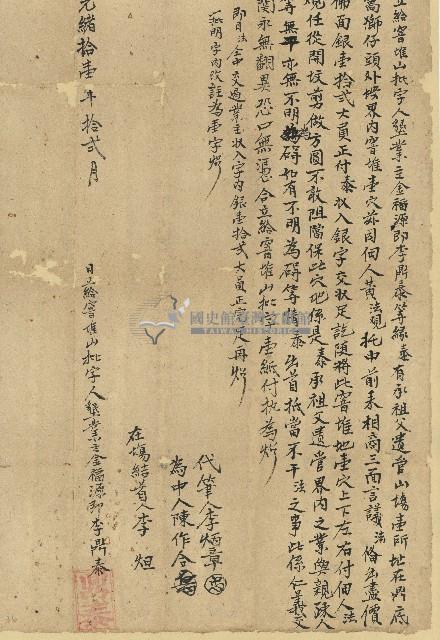 立給窨堆山批字人墾業主金福源即李鼎泰等緣泰有承祖父遺管山塲壹所址在鼎底
窩獅仔頭外揆界内窨堆壹穴茲因佃人黃法現托中前來相商三面言議法備出盡價
佛面銀壹拾弍大員正付泰收入銀字交收足訖随將此窨堆地壹穴上下左右付佃人法
現任從開坟剪做方圓不敢阻當保此穴地係是泰承祖父遺管界内之業與親疎人
等無干亦無不明為碍如有不明為碍等情泰出首抵當不干法之事此係仁義交
関永無翻異恐口無憑合立給窨堆山批字壹紙付执為炤
即日法全中交過業主收入字内銀壹拾弍大員正完足再炤
一批明字内改註為壹字炤
代筆人李炳章
為中人陳作合
在塲結首人李炟
光緒拾壹年拾弍月
日立給窨堆山批字人墾業主金福源即李鼎泰
國史館臺灣文獻館
TAIWAN HISTORICA